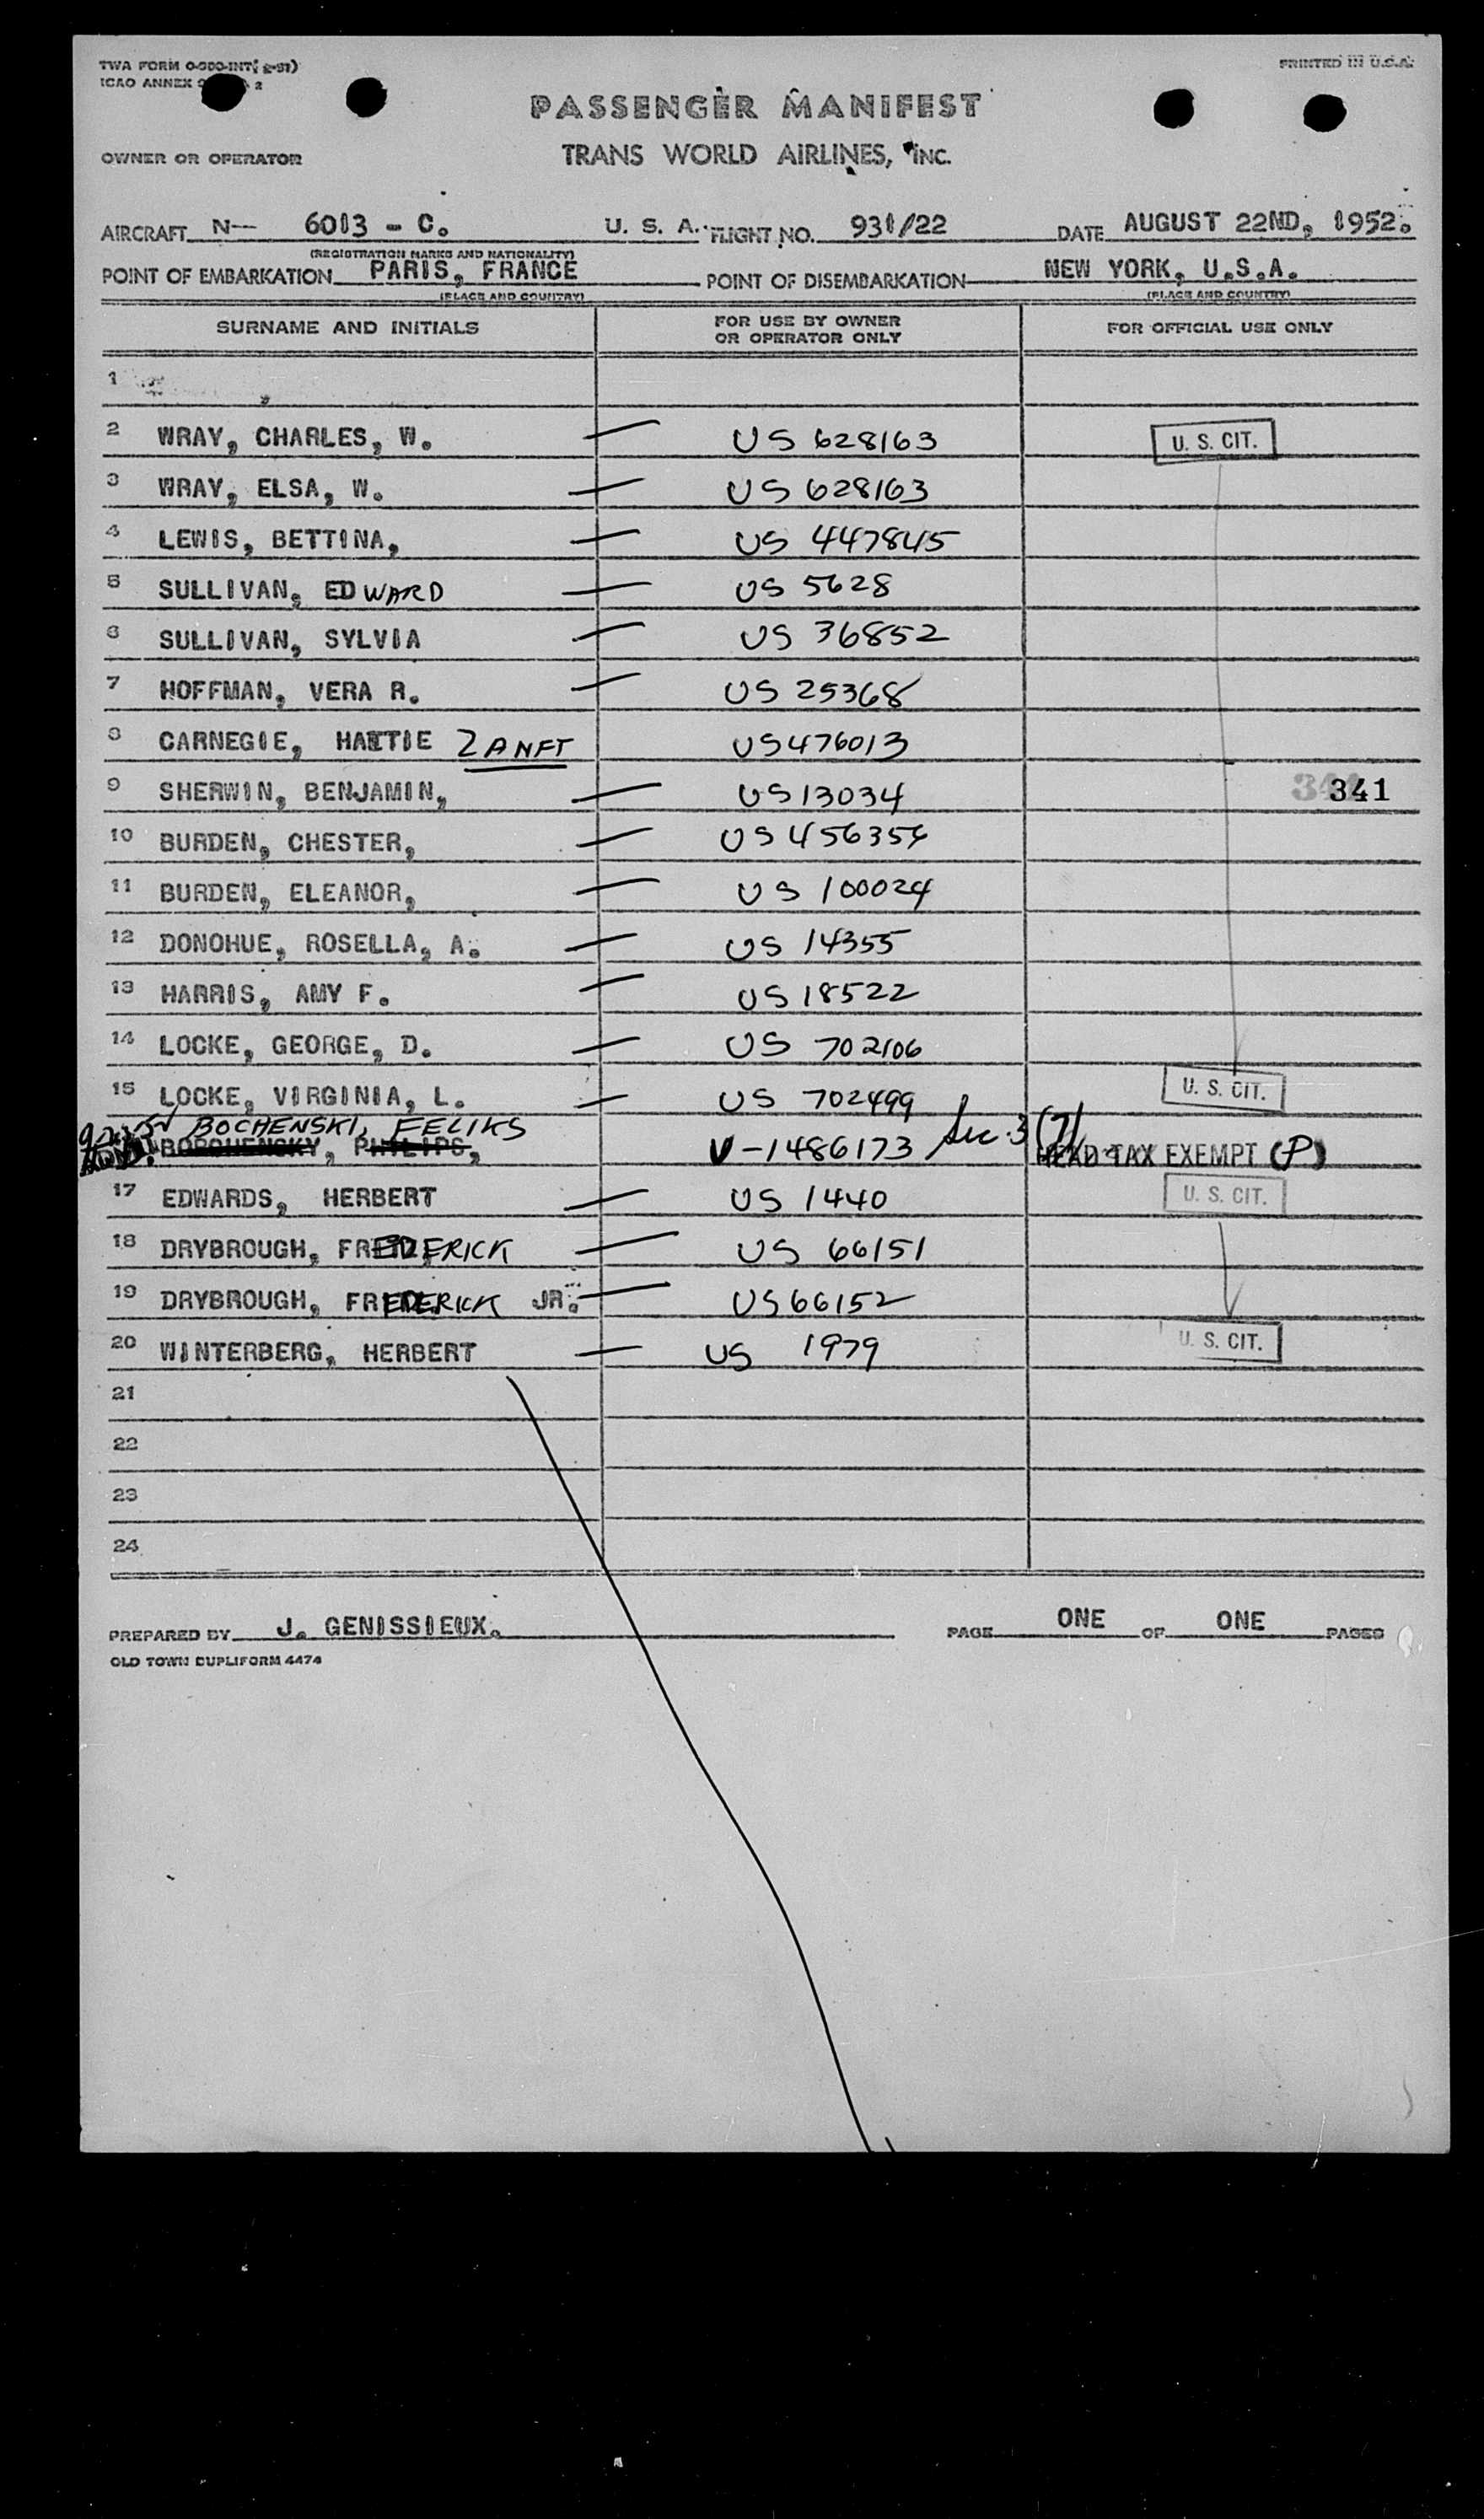 TWA FORM O-300-INT( 2-51) PRINTED IN U.S.A.
ICAO ANNEX 2
PASSENGER MANIFEST
OWNER OR OPERATOR TRANS WORLD AIRLINES, INC.
AIRCRAFT N— 6013 - C. U. S. A. FLIGHT NO. 931/22 DATE AUGUST 22ND, 1952.
(REGISTRATION MARKS AND NATIONALITY)
POINT OF EMBARKATION PARIS, FRANCE POINT OF DISEMBARKATION NEW YORK, U.S.A.
(PLACE AND COUNTRY) (PLACE AND COUNTRY)
SURNAME AND INITIALS FOR USE BY OWNER OR OPERATOR ONLY FOR OFFICIAL USE ONLY
1
2 WRAY, CHARLES, W. — US 628163 U. S. CIT.
3 WRAY, ELSA, W. — US 628163
4 LEWIS, BETTINA, — US 447845
5 SULLIVAN, EDWARD — US 5628
6 SULLIVAN, SYLVIA — US 36852
7 HOFFMAN, VERA R. — US 25368
8 CARNEGIE, HATTIE ZANFT US 476013
9 SHERWIN, BENJAMIN, — US 13034 341
10 BURDEN, CHESTER, — US 456354
11 BURDEN, ELEANOR, — US 100024
12 DONOHUE, ROSELLA, A. — US 14355
13 HARRIS, AMY F. — US 18522
14 LOCKE, GEORGE, D. — US 702106
15 LOCKE, VIRGINIA, L. — US 702499 U. S. CIT.
BOCHENSKI, FELIKS
BORCHENSKY, PHILIPS, V-1486173 Sec. 3 (7) HEAD TAX EXEMPT (P)
17 EDWARDS, HERBERT — US 1440 U. S. CIT.
18 DRYBROUGH, FREDERICK — US 66151
19 DRYBROUGH, FREDERICK JR. — US 66152
20 WINTERBERG, HERBERT — US 1979 U. S. CIT.
21
22
23
24
PREPARED BY J. GENISSIEUX. PAGE ONE OF ONE PAGES
OLD TOWN DUPLIFORM 4474